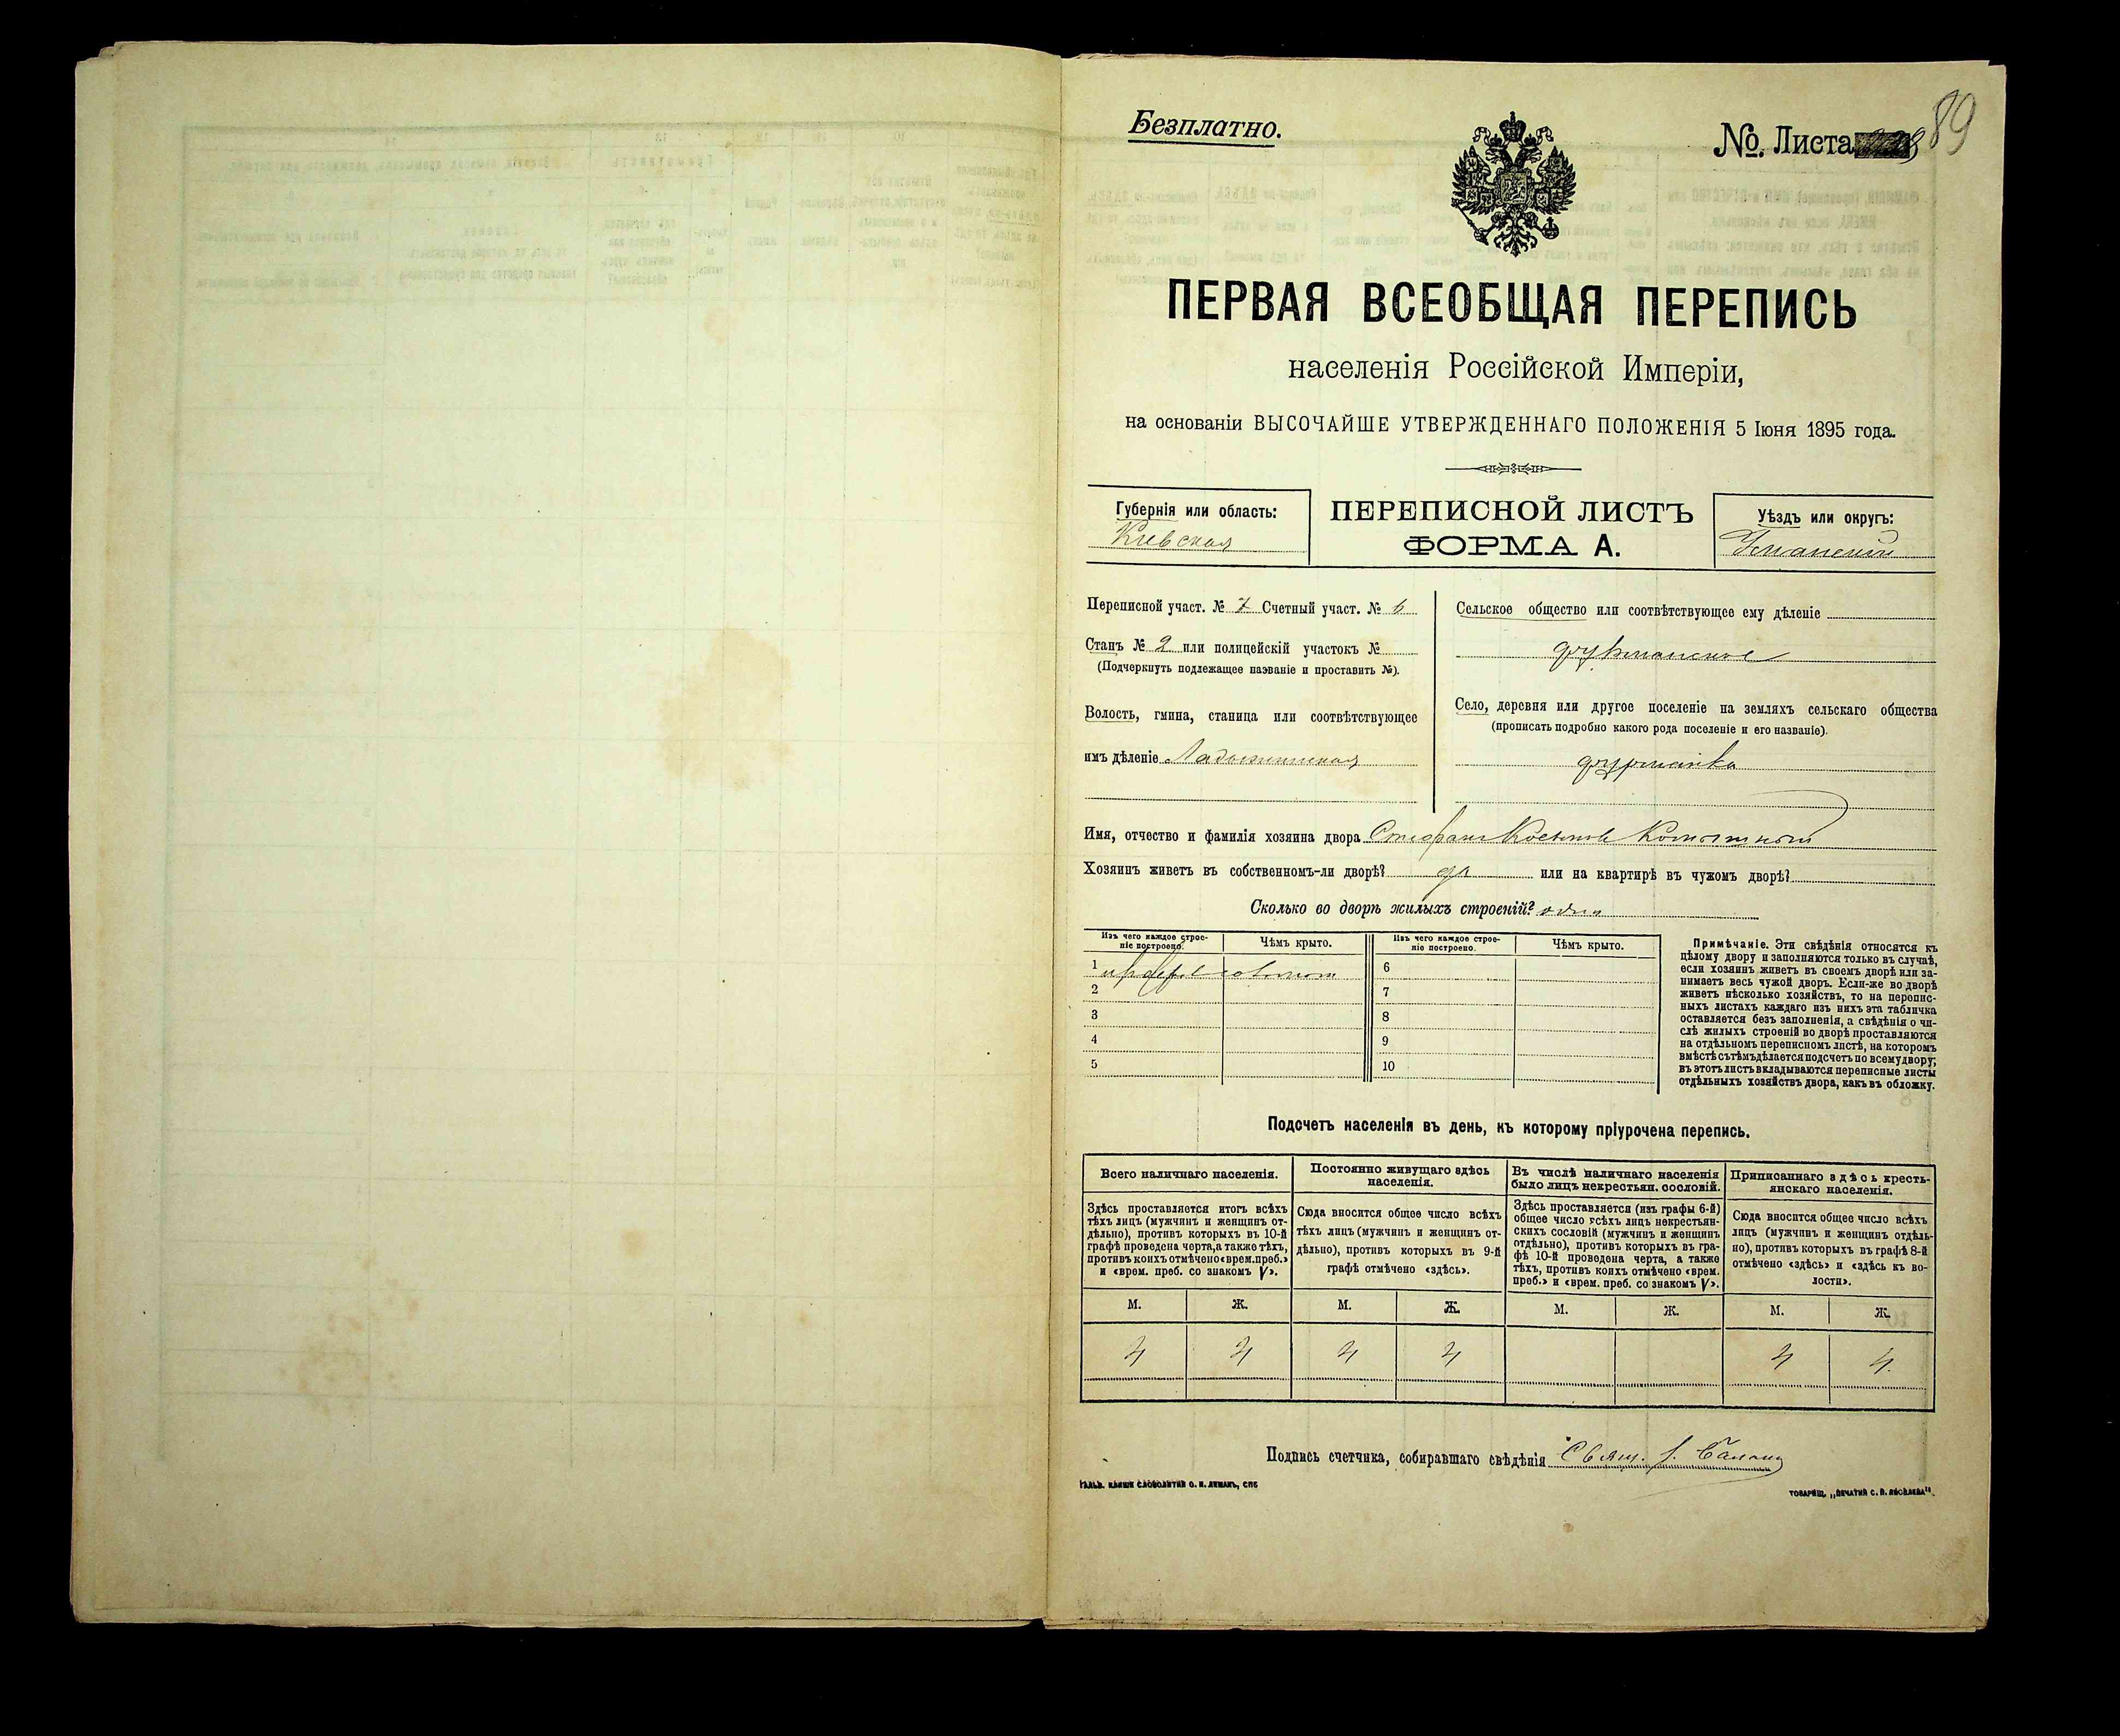 Безплатно.
№. Листа 89
ПЕРВАЯ ВСЕОБЩАЯ ПЕРЕПИСЬ
населенія Россійской Имперіи,
на основаніи ВЫСОЧАЙШЕ УТВЕРЖДЕННАГО ПОЛОЖЕНІЯ 5 Іюня 1895 года.
Губернія или область:
Кіевская
ПЕРЕПИСНОЙ ЛИСТЪ
ФОРМА А.
Уѣздъ или округъ:
Уманскій
Переписной участ. № 7 Счетный участ. № 6
Станъ № 2 или полицейскій участокъ №
(Подчеркнуть подлежащее названіе и проставить №).
Волость, гмина, станица или соотвѣтствующее
имъ дѣленіе Ладыжинская
Сельское общество или соотвѣтствующее ему дѣленіе
Фурманское
Село, деревня или другое поселеніе на земляхъ сельскаго общества
(прописать подробно какого рода поселеніе и его названіе).
Фурманка
Имя, отчество и фамилія хозяина двора Стефанъ
Хозяинъ живетъ въ собственномъ-ли дворѣ? да или на квартирѣ въ чужомъ дворѣ?
Сколько во дворѣ жилыхъ строеній? одно
Изъ чего каждое строе-
ніе построено.
Чѣмъ крыто.
Изъ чего каждое строе-
ніе построено.
Чѣмъ крыто.
1 соломой
6
2
7
3
8
4
9
5
10
Примѣчаніе. Эти свѣдѣнія относятся къ
цѣлому двору и заполняются только въ случаѣ,
если хозяинъ живетъ въ своемъ дворѣ или за-
нимаетъ весь чужой дворъ. Если-же во дворѣ
живетъ нѣсколько хозяйствъ, то на перепис-
ныхъ листахъ каждаго изъ нихъ эта табличка
оставляется безъ заполненія, а свѣдѣнія о чи-
слѣ жилыхъ строеній во дворѣ проставляются
на отдѣльномъ переписномъ листѣ, на которомъ
вмѣстѣ съ тѣмъ дѣлается подсчетъ по всему двору;
въ этотъ листъ вкладываются переписные листы
отдѣльныхъ хозяйствъ двора, какъ въ обложку.
Подсчетъ населенія въ день, къ которому пріурочена перепись.
Всего наличнаго населенія.
Постоянно живущаго здѣсь
населенія.
Въ числѣ наличнаго населенія
было лицъ некрестьян. сословій.
Приписаннаго здѣсь кресть-
янскаго населенія.
Здѣсь проставляется итогъ всѣхъ
тѣхъ лицъ (мужчинъ и женщинъ от-
дѣльно), противъ которыхъ въ 10-й
графѣ проведена черта, а также тѣхъ,
противъ коихъ отмѣчено «врем. преб.»
и «врем. преб. со знакомъ V».
Сюда вносится общее число всѣхъ
тѣхъ лицъ (мужчинъ и женщинъ от-
дѣльно), противъ которыхъ въ 9-й
графѣ отмѣчено «здѣсь».
Здѣсь проставляется (изъ графы 6-й)
общее число всѣхъ лицъ некрестьян-
скихъ сословій (мужчинъ и женщинъ
отдѣльно), противъ которыхъ въ гра-
фѣ 10-й проведена черта, а также
тѣхъ, противъ коихъ отмѣчено «врем.
преб.» и «врем. преб. со знакомъ V».
Сюда вносится общее число всѣхъ
лицъ (мужчинъ и женщинъ отдѣль-
но), противъ которыхъ въ графѣ 8-й
отмѣчено «здѣсь» и «здѣсь къ во-
лости».
М. Ж. М. Ж. М. Ж. М. Ж.
4 4 4 4 4 4
Подпись счетчика, собиравшаго свѣдѣнія Свящ.
ГАЛЬВ. КЛИШЕ СЛОВОЛИТНИ О. И. ЛЕМАНЪ, СПБ
ТОВАРИЩ. „ПЕЧАТНЯ С. П. ЯКОВЛЕВА“.